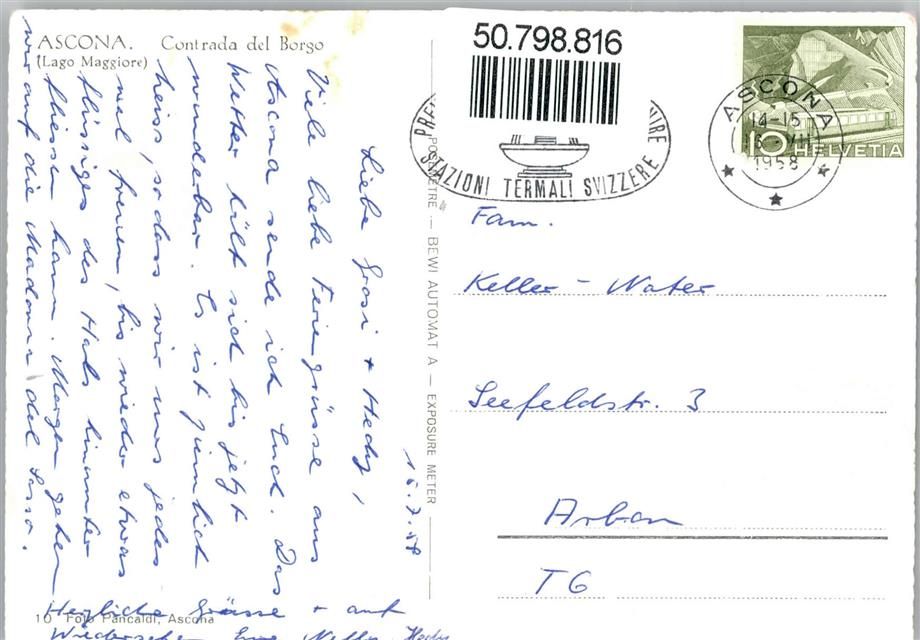 ASCONA. Contrada del Borgo
(Lago Maggiore)
16.7.58
Liebe Grosi + Hedy,
Viele liebe Feriengrüsse aus
Ascona sende ich Euch. Das
Wetter hält sich bis jetzt
wunderbar. Es ist ziemlich
heiss, sodass wir uns jedes
mal freuen, bis wieder etwas
flüssiges des Hals hinunter
fliessen kann. Morgen gehen
wir auf die Madonna del Sasso.
Herzliche Grüsse + auf
Wiedersehen Eure Nelly
10 Foto Pancaldi, Ascona
POSEMETRE — BEWI AUTOMAT A — EXPOSURE METER
50.798.816
STAZIONI TERMALI SVIZZERE
ASCONA
14-15
1958
10 HELVETIA
Fam.
Keller - Nater
Seefeldstr. 3
Arbon
TG